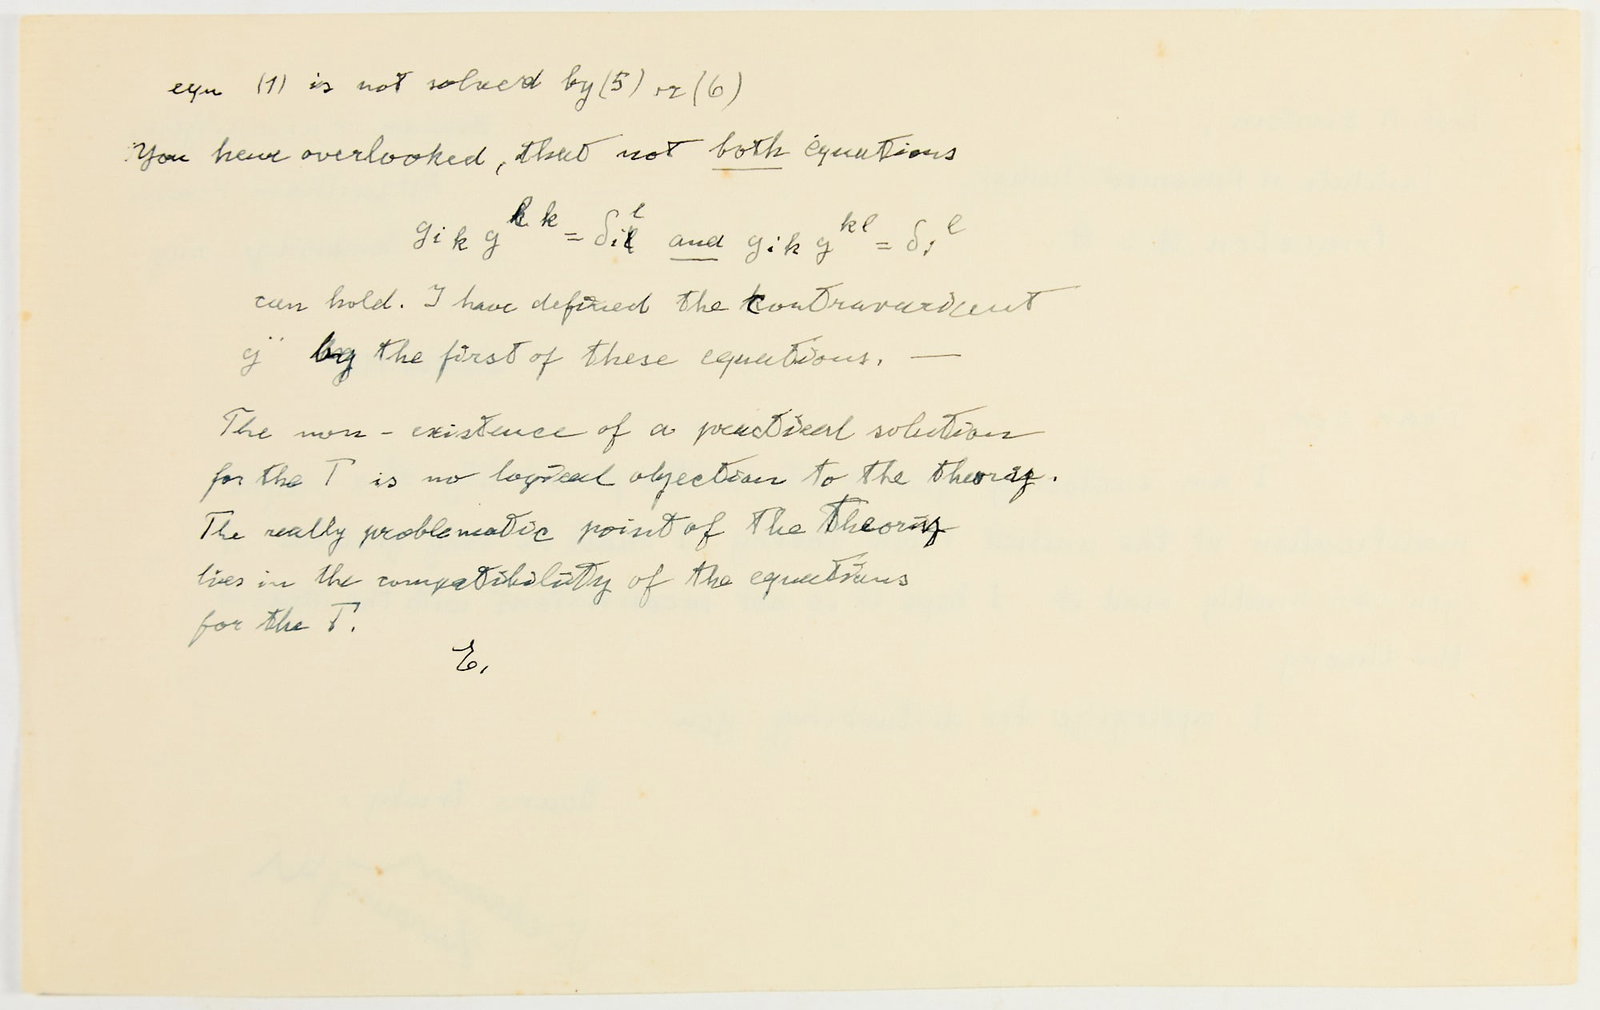 eqn (1) is not solved by (5) or (6)
You have overlooked, that not both equations
g_{ik} g^{lk} = δ_i^l and g_{ik} g^{kl} = δ_i^l
can hold. I have defined the contravariant
g^{..} by the first of these equations. —
The non-existence of a practical solution
for the Γ is no logical objection to the theory.
The really problematic point of the theory
lies in the compatibility of the equations
for the Γ.
E.